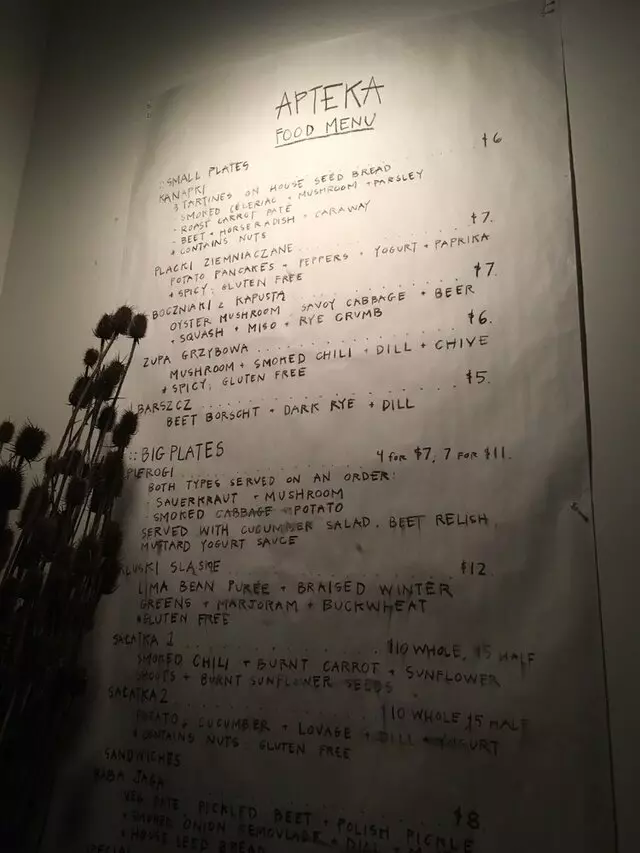 APTEKA
FOOD MENU
:: SMALL PLATES
KANAPKI $6
3 TARTINES ON HOUSE SEED BREAD
- SMOKED CELERIAC + MUSHROOM + PARSLEY
- ROAST CARROT PATÉ
- BEET + HORSERADISH + CARAWAY
* CONTAINS NUTS
PLACKI ZIEMNIACZANE . . . . . . . . . . $7.
POTATO PANCAKES + PEPPERS + YOGURT + PAPRIKA
* SPICY; GLUTEN FREE
BOCZNIAKI Z KAPUSTĄ $7
OYSTER MUSHROOM SAVOY CABBAGE + BEER
+ SQUASH + MISO + RYE CRUMB
ZUPA GRZYBOWA . . . . . . . . . . $6.
MUSHROOM + SMOKED CHILI + DILL + CHIVE
* SPICY; GLUTEN FREE
BARSZCZ . . . . . . . . . . $5.
BEET BORSCHT + DARK RYE + DILL
:: BIG PLATES
PIEROGI . . . . . . . . . . 4 FOR $7, 7 FOR $11.
BOTH TYPES SERVED ON AN ORDER:
- SAUERKRAUT + MUSHROOM
- SMOKED CABBAGE + POTATO
SERVED WITH CUCUMBER SALAD, BEET RELISH,
MUSTARD YOGURT SAUCE
KLUSKI ŚLĄSKIE . . . . . . . . . . $12.
LIMA BEAN PURÉE + BRAISED WINTER
GREENS + MARJORAM + BUCKWHEAT
*GLUTEN FREE
SAŁATKA 1 . . . . . . . . . . $10 WHOLE, $5 HALF
SMOKED CHILI + BURNT CARROT + SUNFLOWER
SHOOTS + BURNT SUNFLOWER SEEDS
SAŁATKA 2 . . . . . . . . . . $10 WHOLE $5 HALF
POTATO, CUCUMBER + LOVAGE + DILL + YOGURT
* CONTAINS NUTS GLUTEN FREE
SANDWICHES
BABA JAGA $8
VEG PATE PICKLED BEET + POLISH PICKLE
+ SMOKED ONION REMOULADE + DILL +
+ HOUSE SEED BREAD
SPECIAL